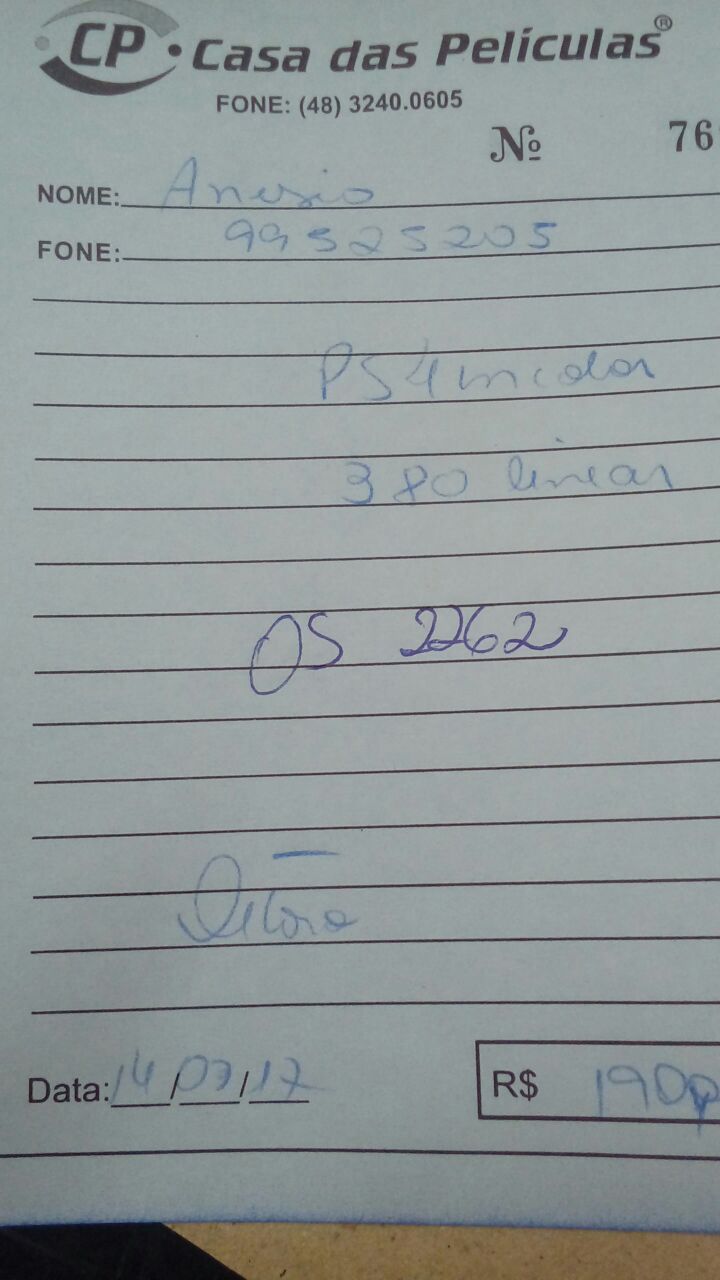 CP • Casa das Películas®
FONE: (48) 3240.0605
Nº 76
NOME: Anesio
FONE: 99525205
PS4 incolor
380 linear
OS 2262
Débora
Data: 14/07/17 R$ 190,